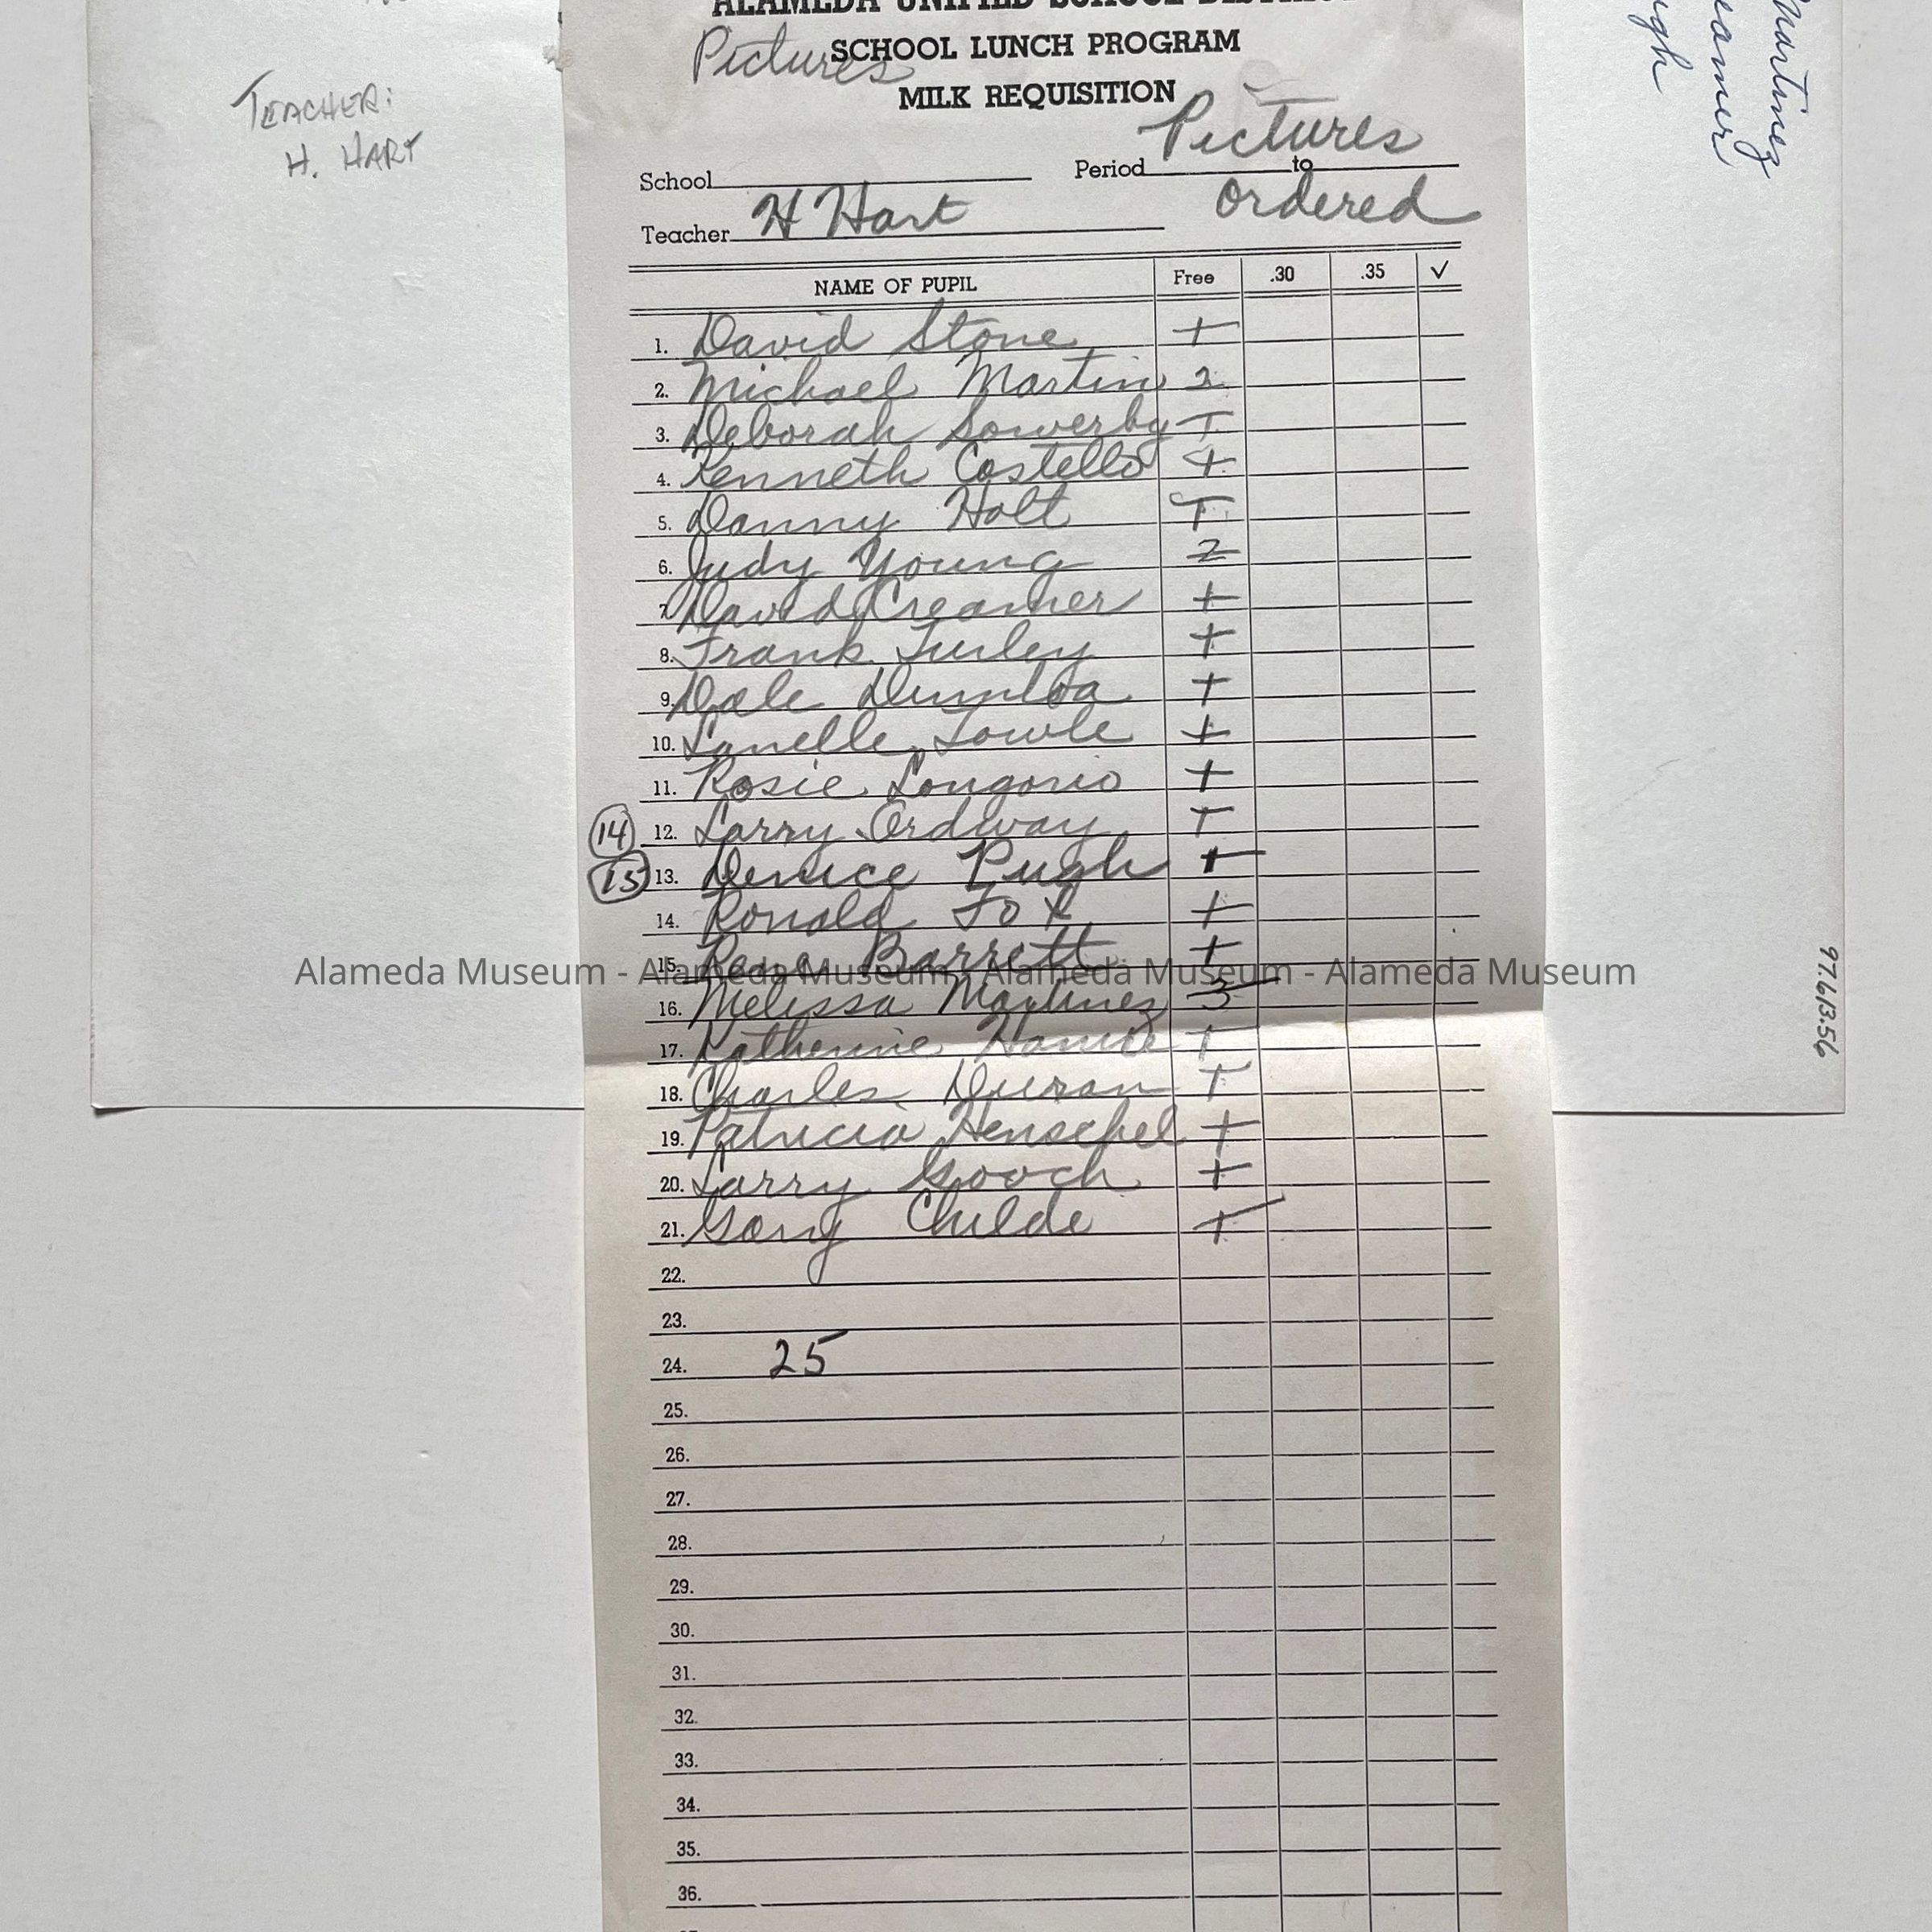 ALAMEDA UNIFIED SCHOOL DISTRICT
Pictures
SCHOOL LUNCH PROGRAM
MILK REQUISITION
TEACHER:
H. HART
Martinez
eamer
ugh
Pictures
School Period to
ordered
Teacher H Hart
NAME OF PUPIL Free .30 .35 ✓
1. David Stone +
2. Michael Martin 2
3. Deborah Sowerby T
4. Kenneth Costello +
5. Danny Holt T
6. Judy Young 2
7. David Creamer +
8. Frank Turley +
9. Dale +
10. Lanelle Towle +
11. Rosie Longorio +
14 12. Larry Ordway T
15 13. Denice Pugh +
14. Ronald Fox +
15. Rene Barrett +
Alameda Museum - Alameda Museum - Alameda Museum - Alameda Museum
16. Melissa Martinez 3
17. Katherine T
18. Charles Duran T
19. Patricia Henschel +
20. Larry Gooch +
21. Gary Childe +
22.
23.
24. 25
25.
26.
27.
28.
29.
30.
31.
32.
33.
34.
35.
36.
97.613.56